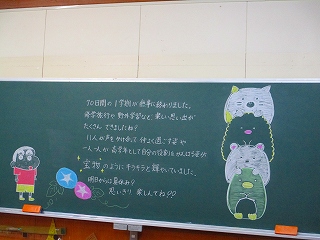 70日間の1学期が無事に終わりました。
修学旅行や野外学習など、楽しい思い出が
たくさんできましたね?
11人が声をかけ合って仲よく過ごす姿や
一人一人が高学年として自分の役割をがんばる姿が
宝物のようにキラキラと輝やいていました。
明日からは夏休み?
思いきり楽しんでね♡♡